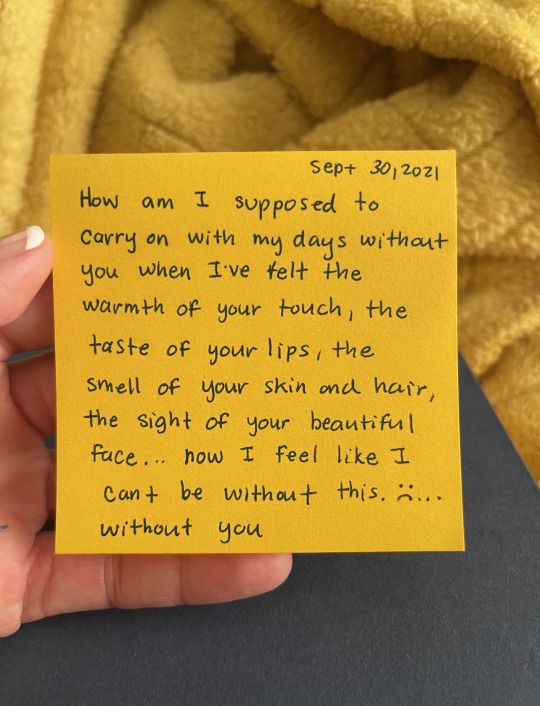 Sept 30, 2021
How am I supposed to
carry on with my days without
you when I've felt the
warmth of your touch, the
taste of your lips, the
smell of your skin and hair,
the sight of your beautiful
face... now I feel like I
can't be without this. :( ...
without you